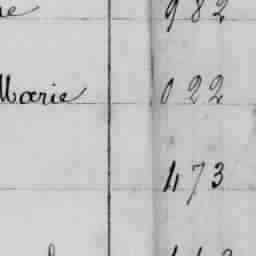 982
Marie 022
473